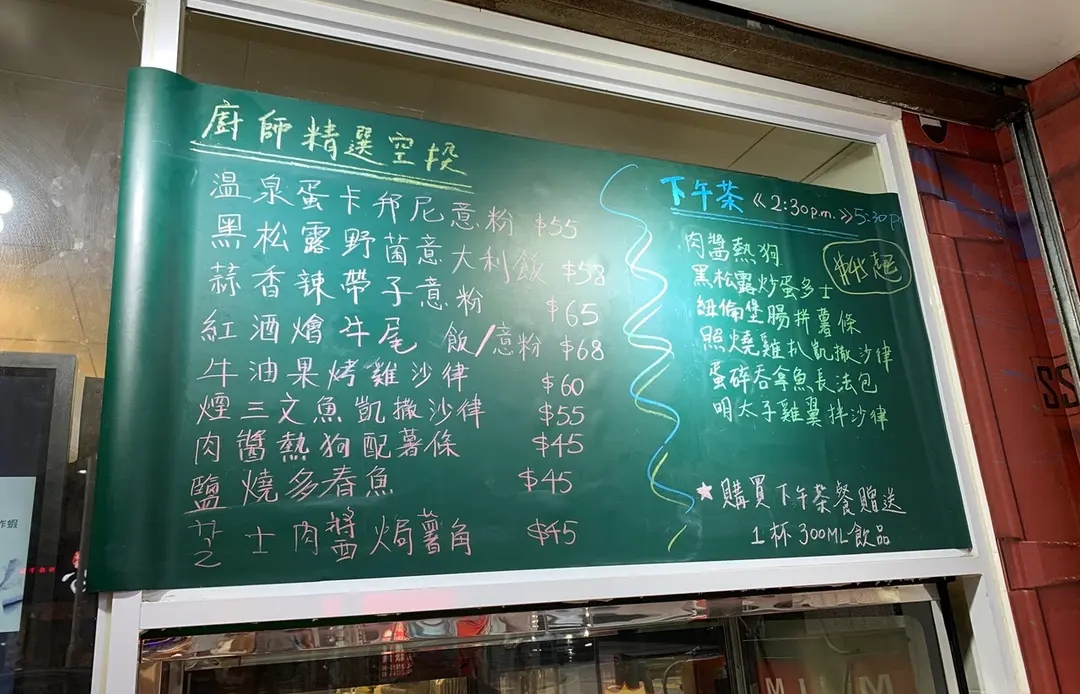 廚師精選空投
溫泉蛋卡邦尼意粉 $55
黑松露野菌意大利飯 $58
蒜香辣帶子意粉 $65
紅酒燴牛尾 飯/意粉 $68
牛油果烤雞沙律 $60
煙三文魚凱撒沙律 $55
肉醬熱狗配薯條 $45
鹽燒多春魚 $45
芝士肉醬焗薯角 $45
下午茶 《2:30p.m.》5:30p
肉醬熱狗
黑松露炒蛋多士
紐倫堡腸拼薯條
照燒雞扒凱撒沙律
蛋碎吞拿魚長法包
明太子雞翼拌沙律
★購買下午茶餐贈送
1杯300ML飲品
SS